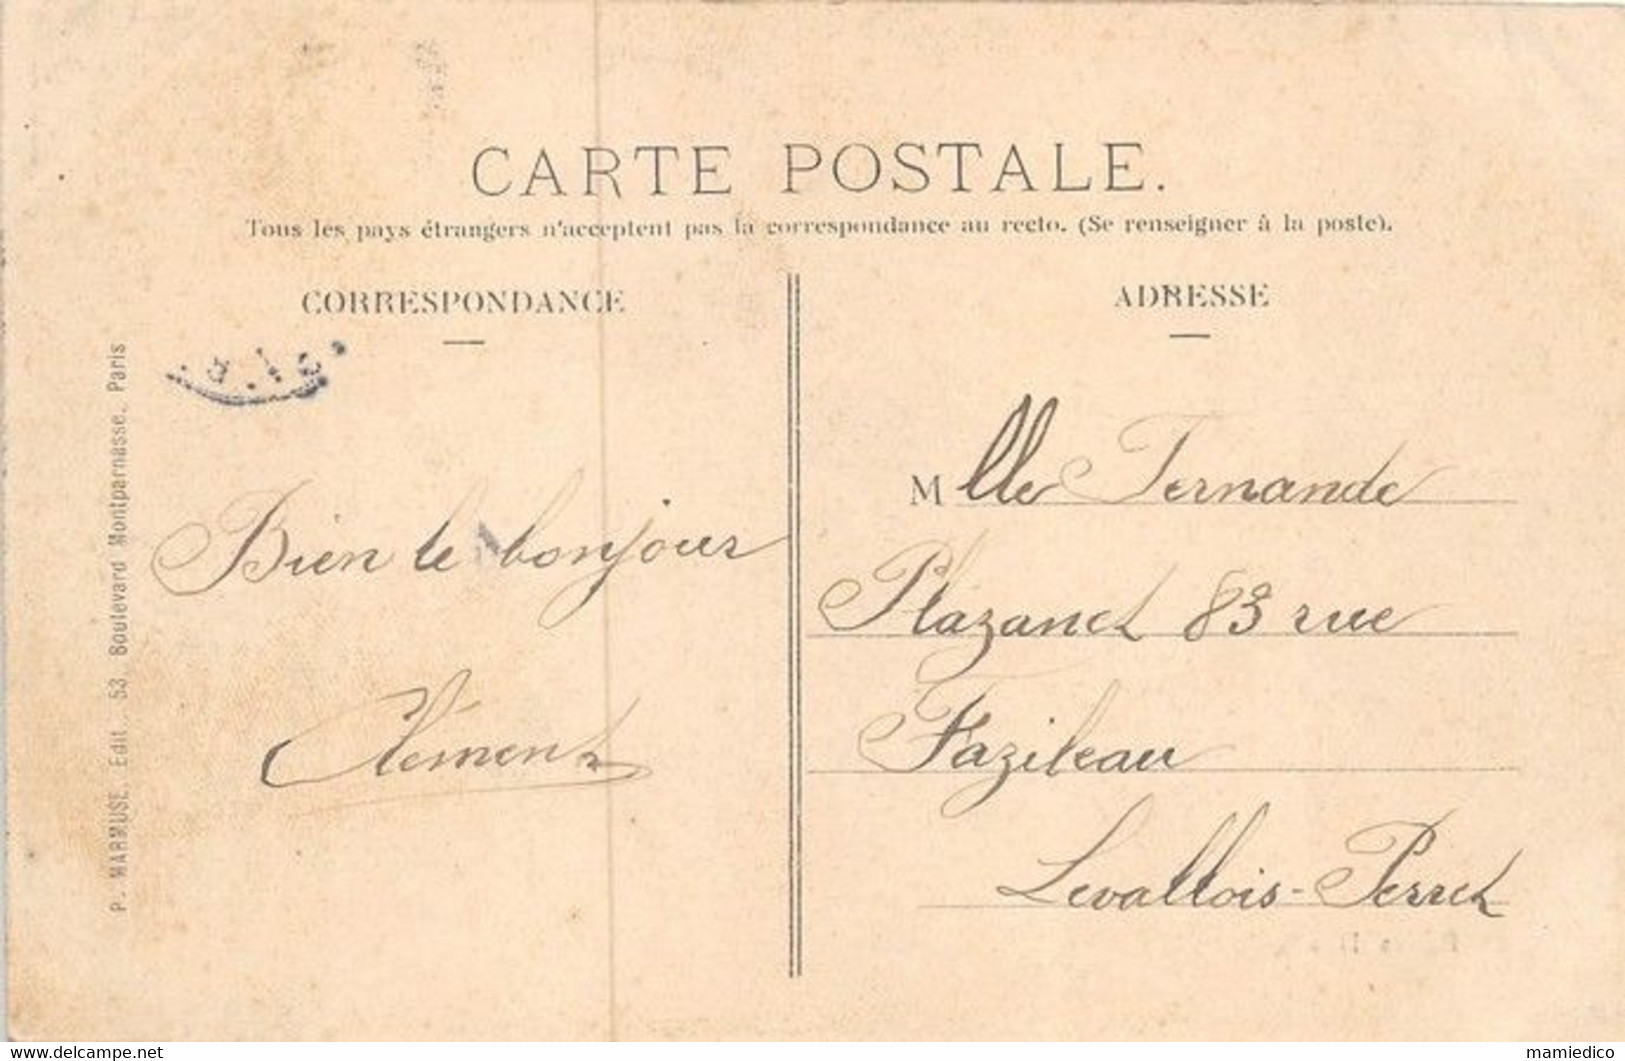 CARTE POSTALE.
Tous les pays étrangers n'acceptent pas la correspondance au recto. (Se renseigner à la poste).
CORRESPONDANCE
ADRESSE
P. MARMUSE, Edit., 53, Boulevard Montparnasse, Paris
Bien le bonjour
Clément
Mlle Fernande
Plazanet 83 rue
Fazileau
Levallois-Perret
mamiedico